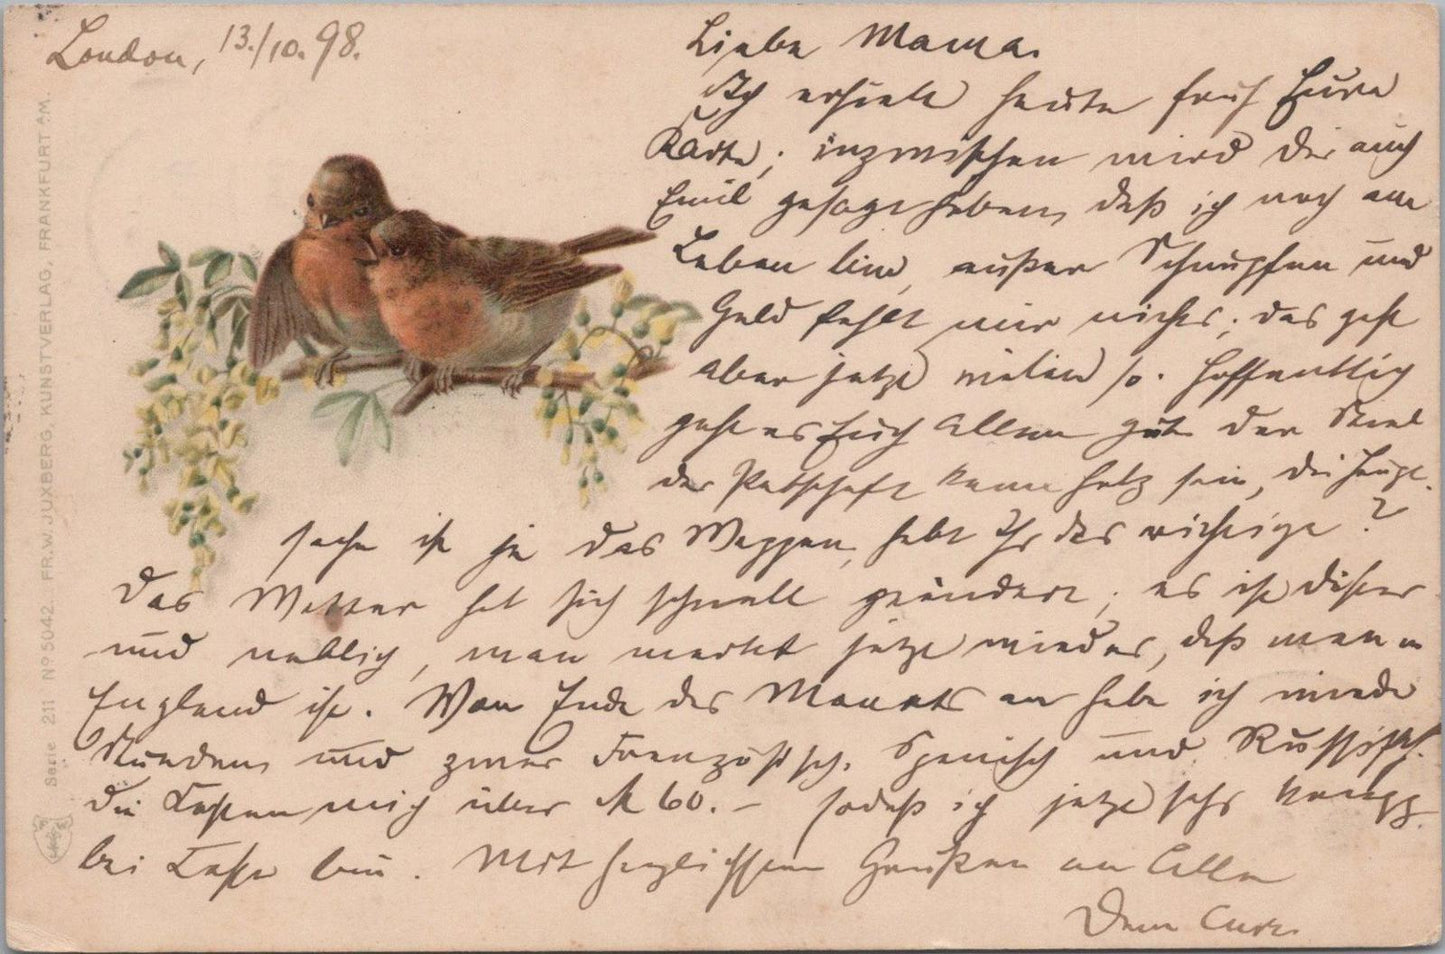 London, 13./10. 98.
Liebe Mama.
Ich erhielt heute früh Eure
Karte; inzwischen wird Dir auch
Emil gesagt haben, daß ich noch am
Leben bin, außer Schnupfen und
Geld fehlt mir nichts; das geht
aber jetzt so. Hoffentlich
geht es Euch Allen gut. Der Stiel
des Petschaft kann Holz sein, die Haupt-
sache ist ja das Wappen, habt Ihr das richtige?
Das Wetter hat sich schnell geändert; es ist düster
und neblig, man merkt jetzt wieder, daß man in
England ist. Von Ende des Monats an habe ich wieder
Stunden und zwar Französisch, Spanisch und Russisch.
Die Kosten mich über M 60.– sodaß ich jetzt sehr knapp
bei Kasse bin. Mit herzlichsten Grüßen an Alle
Dein Curt.
Serie 211 No 5042. FR. W. JUXBERG, KUNSTVERLAG, FRANKFURT A/M.